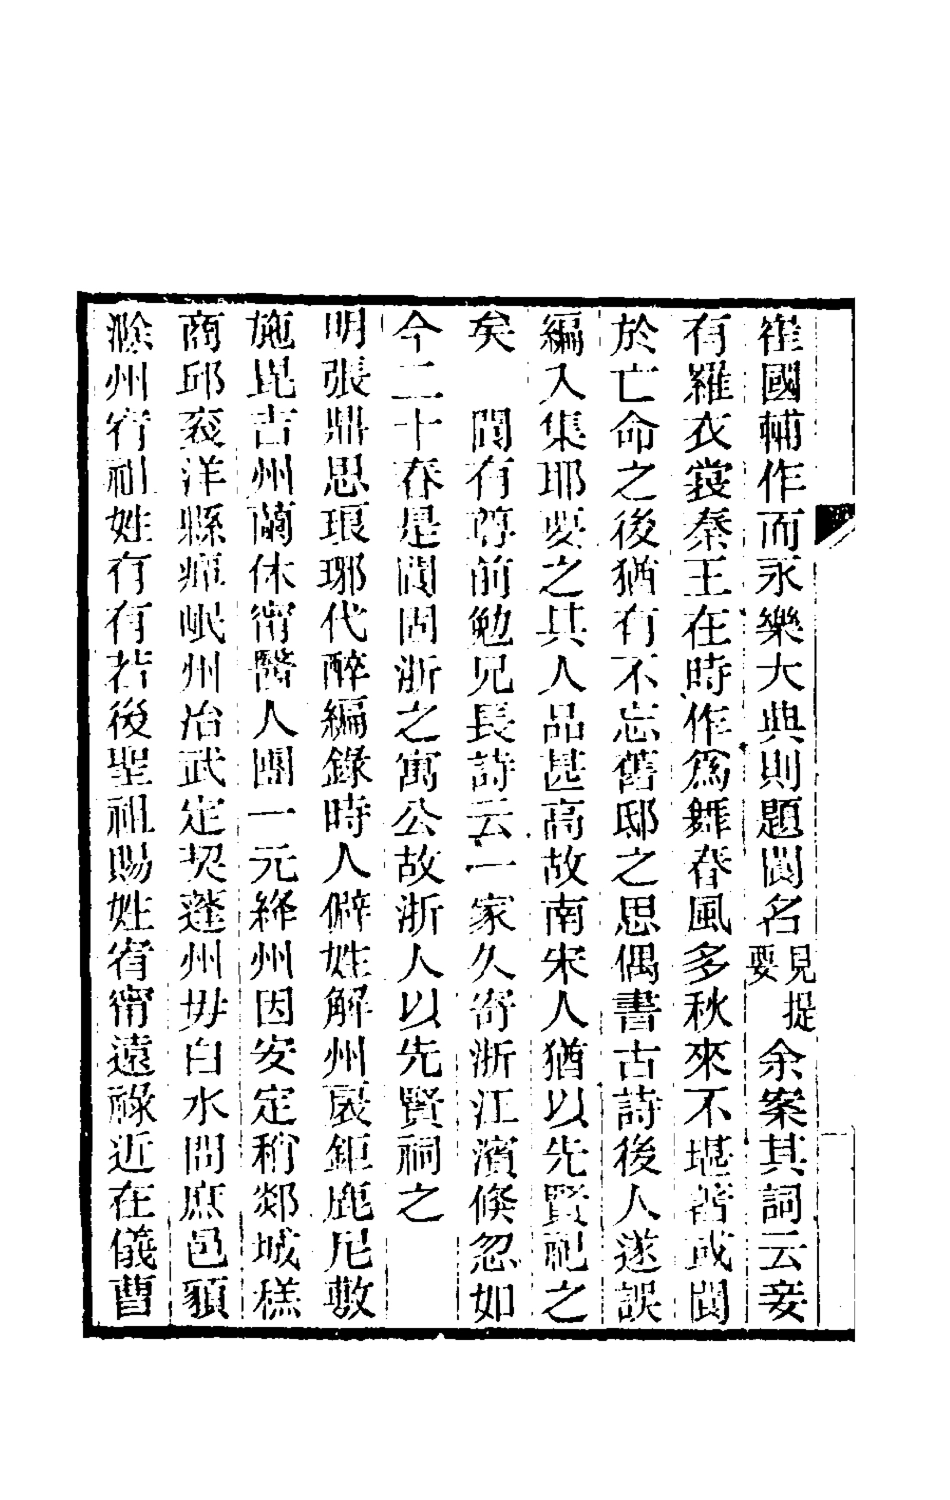 崔國輔作而永樂大典則題閬名見提要余案其詞云妾
有羅衣裳秦王在時作爲舞春風多秋來不堪著或閬
於亡命之後猶有不忘舊邸之思偶書古詩後人遂誤
編入集耶要之其人品甚高故南宋人猶以先賢祀之
矣　閬有尊前勉兄長詩云一家久寄浙江濱倏忽如
今二十春是閬固浙之寓公故浙人以先賢祠之
明張鼎思琅琊代醉編錄時人僻姓解州裴鉅鹿尼敷
施毘吉州蘭休甯醫人團一元絳州因安定稍郯城糕
商邱衮洋縣痺岷州冶武定契蓬州毋白水問庶邑貊
滁州宵祖姓有有若後聖祖賜姓宵甯遠祿近在儀曹